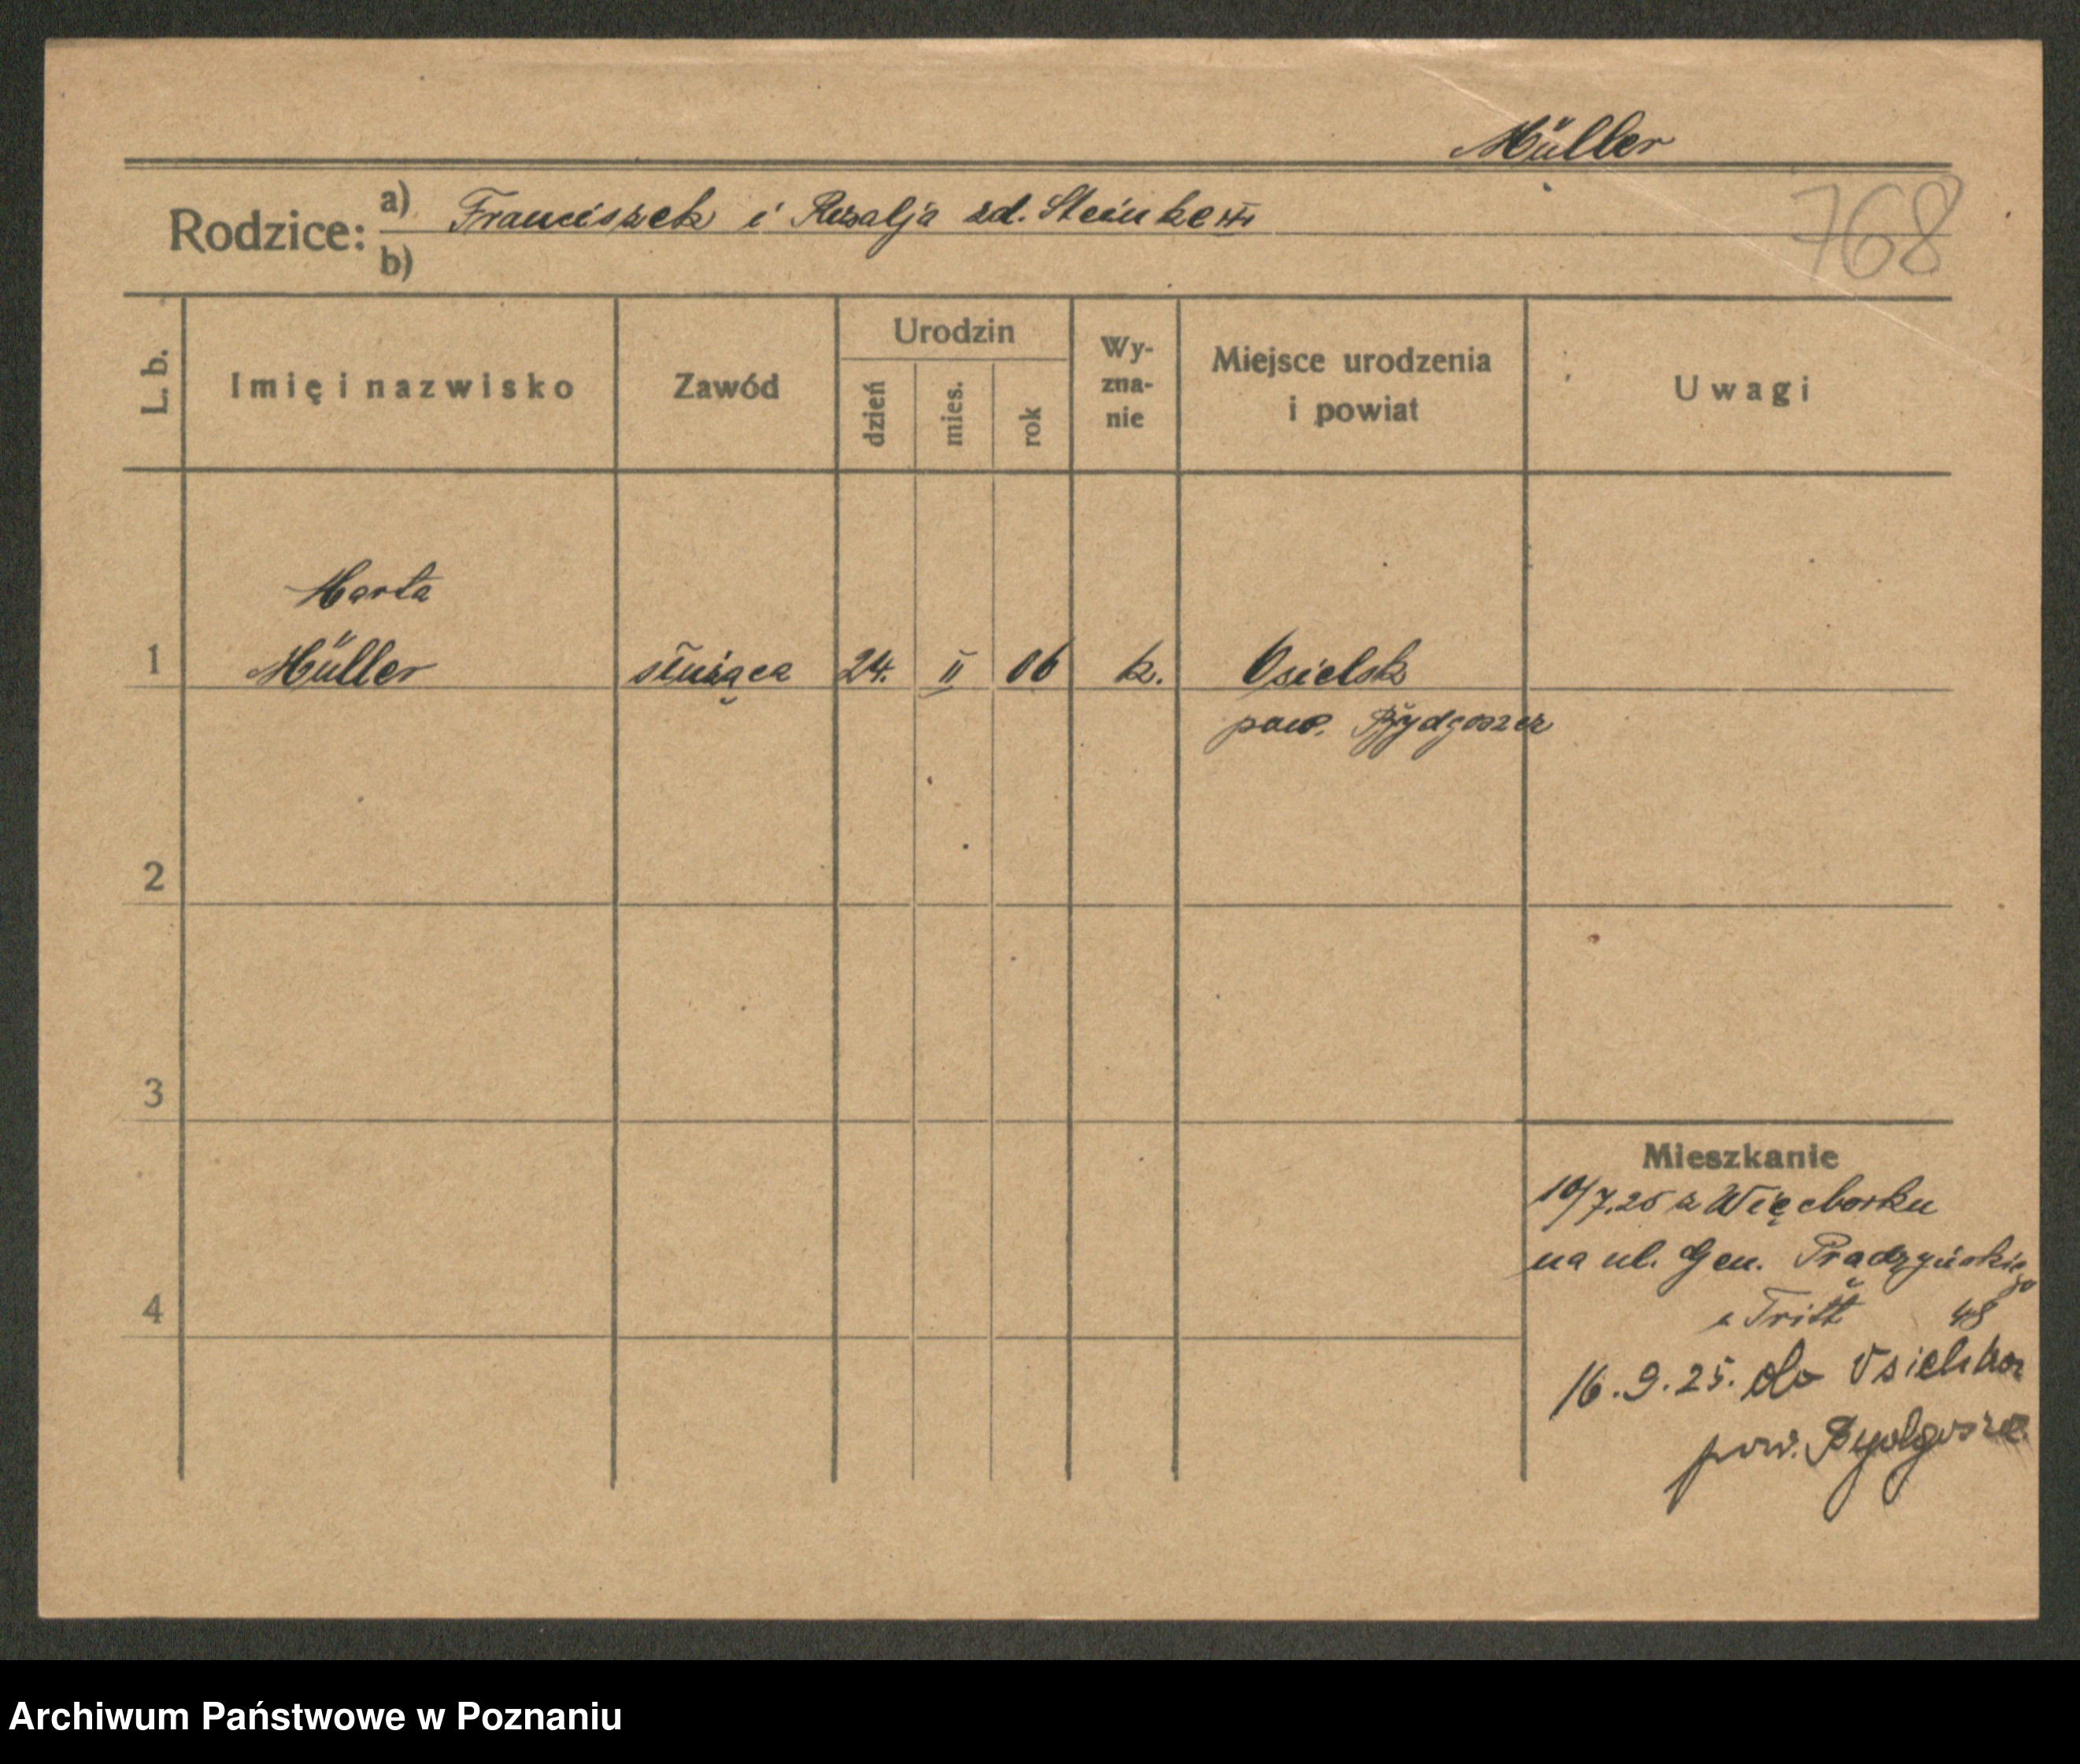 Müller
768
Rodzice: a) Franciszek i Rozalja zd. Steinke
b)
L. b.
Imię i nazwisko
Zawód
Urodzin
dzień
mies.
rok
Wy-
zna-
nie
Miejsce urodzenia
i powiat
Uwagi
Marta
1 Müller służąca 24. II 06 k. Osielsk
pow. Bydgoszcz
2
3
4
Mieszkanie
10/7.25 z Więcborku
na ul. Gen. Prądzyńskiego
u Tritt 48
16.9.25. do Osielska
pow. Bydgoszcz
Archiwum Państwowe w Poznaniu